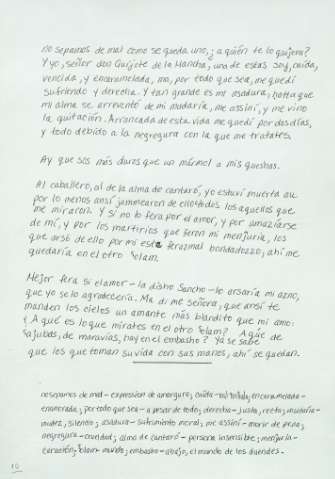 no sepamos de mal como se queda uno, ¿a quién te lo quijera?
Y yo, señor don Quijote de la Mancha, una de estas soy, cuida,
vencida, y encaramelada, ma, por todo que sea, me quedí
sufriendo y derecha. Y tan grande es mi asadura, hasta que
mi alma se arreventó de mi mudaría, me assiní, y me vino
la quitación. Arrancada de esta vida me quedí por dos días,
y todo debido a la negregura con la que me tratates.
Ay que sos más duros que un mármol a mis queshas.
Al caballero, al de la alma de cantaró, yo estuví muerta au
por lo menos ansí de ellotodos los aquellos que
me miraron. Y si no lo fera por el amor, y por
de mí, y por los martirios que feron mi menjuría, los
que arsó de ello por mi este bondadozzo, ahí me
quedaría en el otro 'olam.
Mejor fera si el amor — la disho Sancho — lo arsaría mi azno,
que yo se lo agradecería. Ma di me señora, que arsí te
manden los cielos un amante más blandito que mi amo:
¿A qué es lo que mirates en el otro 'olam? ¿Aqüe de
de maravías, hay en el embasho? Ya se sabe
que los que toman su vida con sus manos, ahí se quedan.
no sepamos de mal – expresión de amargura; cuida – ; encaramelada –
enamorada; por todo que sea – a pesar de todo; derecha – justa, recta; mudaría –
mudez, silentio; asadura – sufrimiento moral; me assiní – morir de pena;
negregura – crueldad; alma de cantaró – persona insensible; menjuría –
curación; 'olam – mundo; embasho – abajo, el mundo de los duendes.